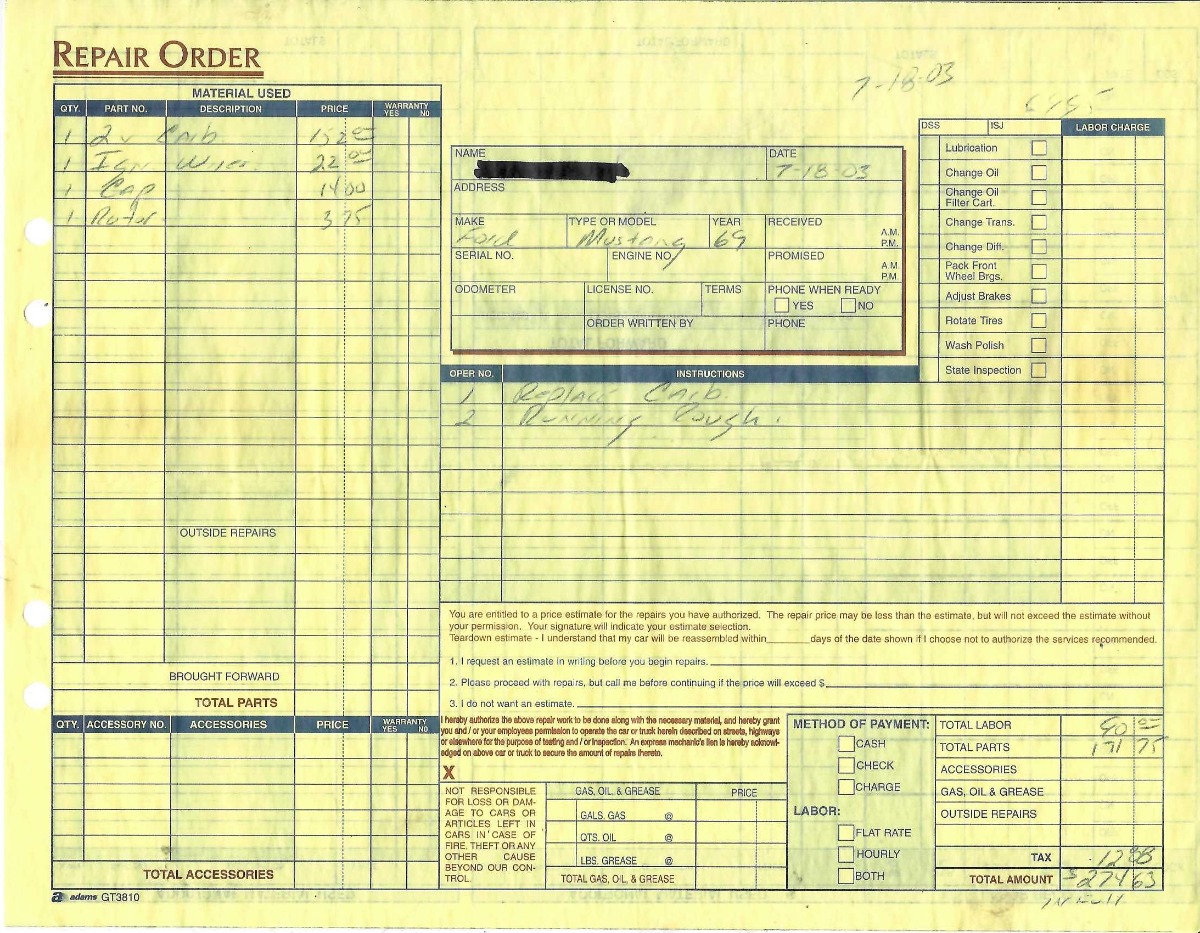 REPAIR ORDER
7-18-03
MATERIAL USED
QTY. PART NO. DESCRIPTION PRICE WARRANTY YES NO
1 2v Carb 152 00
1 Ign Wires 22 00
1 Cap 14 00
1 Rotor 3 75
OUTSIDE REPAIRS
BROUGHT FORWARD
TOTAL PARTS
QTY. ACCESSORY NO. ACCESSORIES PRICE WARRANTY YES NO
TOTAL ACCESSORIES
a adams GT3810
NAME
DATE 7-18-03
ADDRESS
MAKE Ford
TYPE OR MODEL Mustang
YEAR 69
RECEIVED A.M. P.M.
SERIAL NO.
ENGINE NO.
PROMISED A.M. P.M.
ODOMETER
LICENSE NO.
TERMS
PHONE WHEN READY
YES NO
ORDER WRITTEN BY
PHONE
DSS ISJ LABOR CHARGE
Lubrication
Change Oil
Change Oil
Filter Cart.
Change Trans.
Change Diff.
Pack Front
Wheel Brgs.
Adjust Brakes
Rotate Tires
Wash Polish
State Inspection
OPER NO. INSTRUCTIONS
1 Replace Carb.
2 Running Rough.
You are entitled to a price estimate for the repairs you have authorized. The repair price may be less than the estimate, but will not exceed the estimate without
your permission. Your signature will indicate your estimate selection.
Teardown estimate - I understand that my car will be reassembled within______days of the date shown if I choose not to authorize the services recommended.
1. I request an estimate in writing before you begin repairs.
2. Please proceed with repairs, but call me before continuing if the price will exceed $
3. I do not want an estimate.
I hereby authorize the above repair work to be done along with the necessary material, and hereby grant
you and / or your employees permission to operate the car or truck herein described on streets, highways
or elsewhere for the purpose of testing and / or inspection. An express mechanic's lien is hereby acknowl-
edged on above car or truck to secure the amount of repairs thereto.
X
NOT RESPONSIBLE
FOR LOSS OR DAM-
AGE TO CARS OR
ARTICLES LEFT IN
CARS IN CASE OF
FIRE, THEFT OR ANY
OTHER CAUSE
BEYOND OUR CON-
TROL.
GAS, OIL & GREASE PRICE
GALS. GAS @
QTS. OIL @
LBS. GREASE @
TOTAL GAS, OIL, & GREASE
METHOD OF PAYMENT:
CASH
CHECK
CHARGE
LABOR:
FLAT RATE
HOURLY
BOTH
TOTAL LABOR 90 00
TOTAL PARTS 171 75
ACCESSORIES
GAS, OIL & GREASE
OUTSIDE REPAIRS
TAX 12 88
TOTAL AMOUNT $274 63